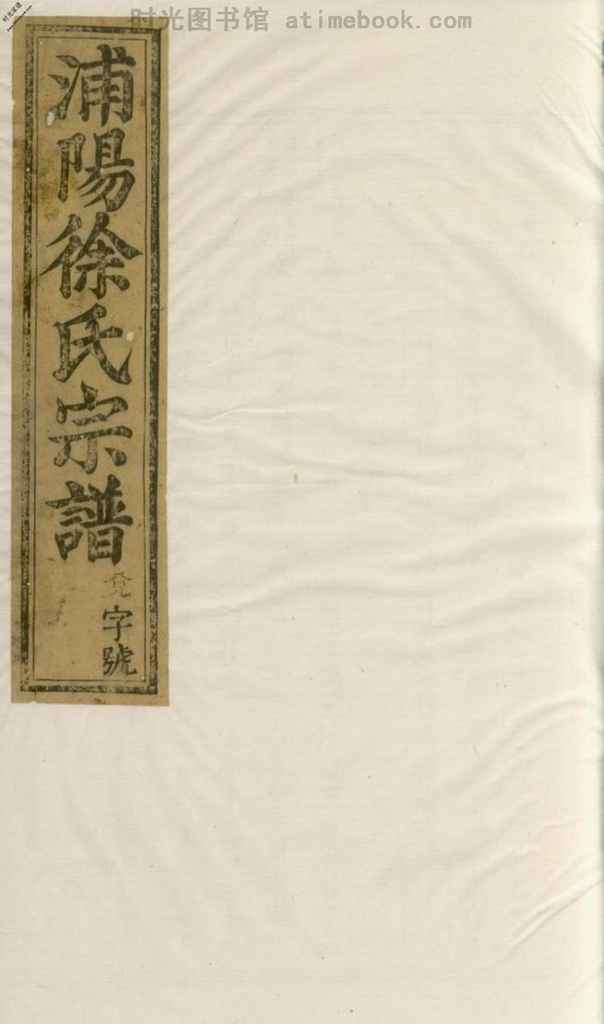 时光图书馆 atimebook.com
浦陽徐氏宗譜
字號